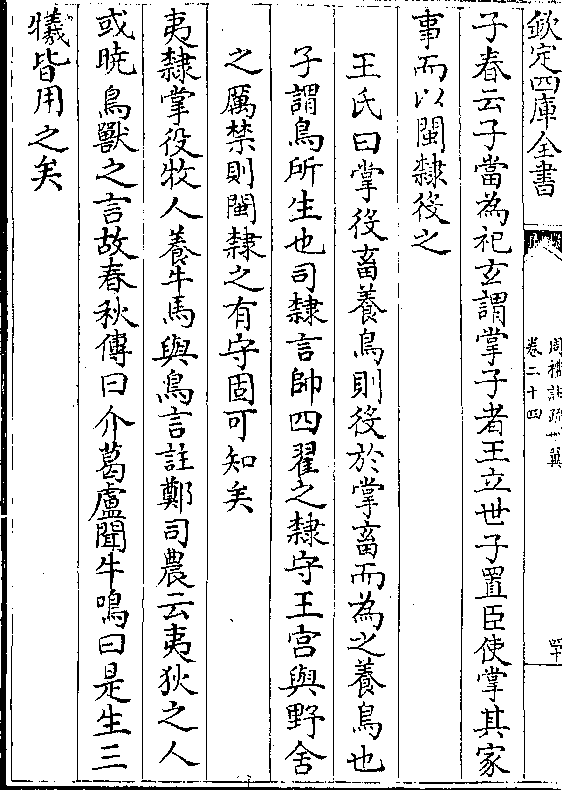 欽定四庫全書
周禮註疏刪翼
卷二十四
子春云子當為祀玄謂掌子者王立世子置臣使掌其家
事而以閩隸役之
王氏曰掌役畜養鳥則役於掌畜而為之養鳥也
子謂鳥所生也司隸言帥四翟之隸守王宫與野舍
之厲禁則閩隸之有守固可知矣
夷隸掌役牧人養牛馬與鳥言註鄭司農云夷狄之人
或曉鳥獸之言故春秋傳曰介葛盧聞牛鳴曰是生三
犧皆用之矣